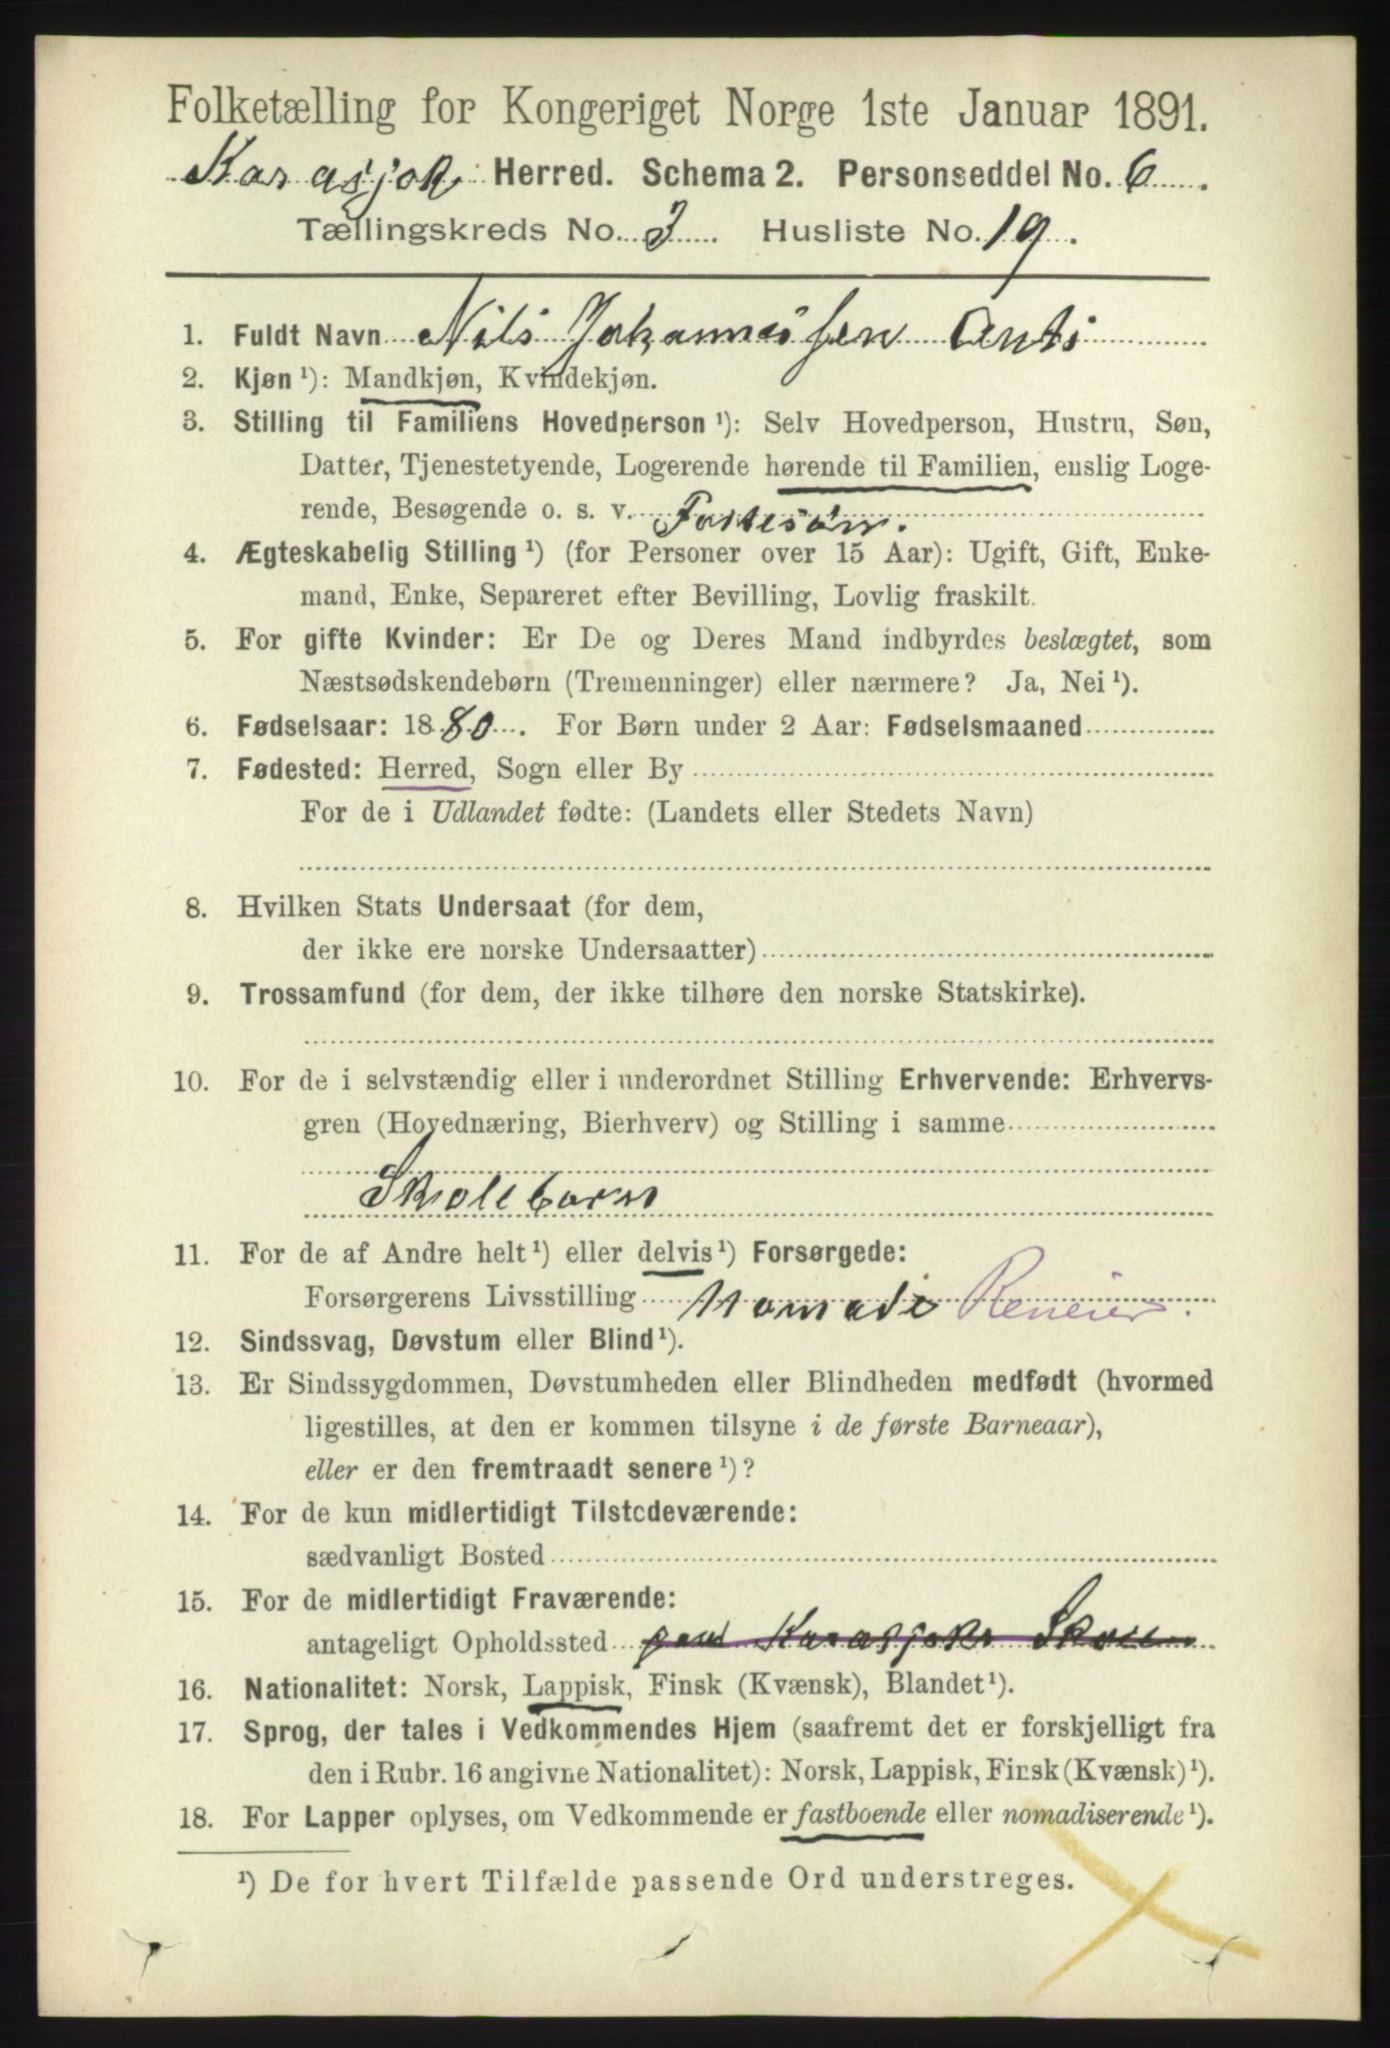 Folketælling for Kongeriget Norge 1ste Januar 1891.
Karasjok Herred. Schema 2. Personseddel No. 6.
Tællingskreds No. 3. Husliste No. 19.
1. Fuldt Navn Nils Johannessen Anti
2. Kjøn ¹): Mandkjøn, Kvindekjøn.
3. Stilling til Familiens Hovedperson ¹): Selv Hovedperson, Hustru, Søn,
Datter, Tjenestetyende, Logerende hørende til Familien, enslig Loge-
rende, Besøgende o. s. v. Fostersøn.
4. Ægteskabelig Stilling ¹) (for Personer over 15 Aar): Ugift, Gift, Enke-
mand, Enke, Separeret efter Bevilling, Lovlig fraskilt.
5. For gifte Kvinder: Er De og Deres Mand indbyrdes beslægtet, som
Næstsødskendebørn (Tremenninger) eller nærmere? Ja, Nei ¹).
6. Fødselsaar: 1880. For Børn under 2 Aar: Fødselsmaaned
7. Fødested: Herred, Sogn eller By
For de i Udlandet fødte: (Landets eller Stedets Navn)
8. Hvilken Stats Undersaat (for dem,
der ikke ere norske Undersaatter)
9. Trossamfund (for dem, der ikke tilhøre den norske Statskirke).
10. For de i selvstændig eller i underordnet Stilling Erhvervende: Erhvervs-
gren (Hovednæring, Bierhverv) og Stilling i samme
Skolebarn
11. For de af Andre helt ¹) eller delvis ¹) Forsørgede:
Forsørgerens Livsstilling Nomade Reneier.
12. Sindssvag, Døvstum eller Blind ¹).
13. Er Sindssygdommen, Døvstumheden eller Blindheden medfødt (hvormed
ligestilles, at den er kommen tilsyne i de første Barneaar),
eller er den fremtraadt senere ¹)?
14. For de kun midlertidigt Tilstedeværende:
sædvanligt Bosted
15. For de midlertidigt Fraværende:
antageligt Opholdssted paa Karasjoks Skole
16. Nationalitet: Norsk, Lappisk, Finsk (Kvænsk), Blandet ¹).
17. Sprog, der tales i Vedkommendes Hjem (saafremt det er forskjelligt fra
den i Rubr. 16 angivne Nationalitet): Norsk, Lappisk, Finsk (Kvænsk) ¹).
18. For Lapper oplyses, om Vedkommende er fastboende eller nomadiserende ¹).
¹) De for hvert Tilfælde passende Ord understreges.